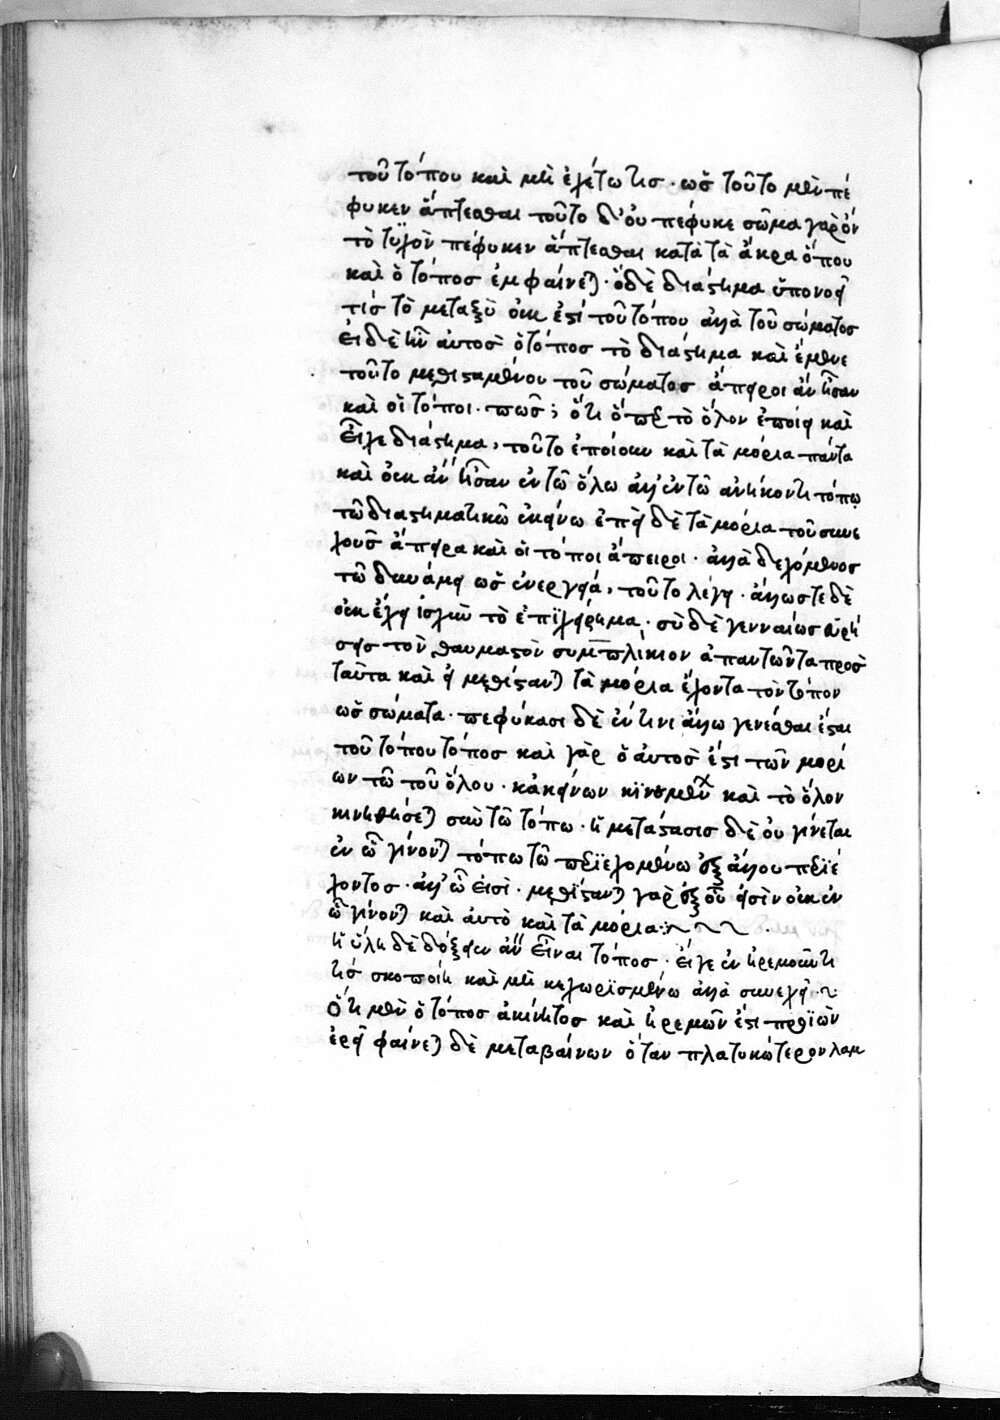 τοῦ τόπου καὶ μὴ λεγέτω τις · ὡς τοῦτο μὲν πέ
φυκεν ἅπτεσθαι τοῦτο δ' οὐ πέφυκε σῶμα γὰρ ὂν
τὸ τυχὸν πέφυκεν ἅπτεσθαι κατὰ τὰ ἄκρα ὅπου
καὶ ὁ τόπος ἐμφαίνεται · ὁ δὲ διάστημα ὑπονοεῖ
τίς τὸ μεταξὺ οὐκ ἔστι τοῦ τόπου ἀλλὰ τοῦ σώματος
εἰ δὲ ἦν αὐτὸς ὁ τόπος τὸ διάστημα καὶ ἔμενε
τοῦτο μεθισταμένου τοῦ σώματος ἄπειροι ἂν ἦσαν
καὶ οἱ τόποι · πῶς; ὅτι ὅπερ τὸ ὅλον ἐποίει καὶ
εἶχε διάστημα, τοῦτο ἐποίουν καὶ τὰ μόρια πάντα
καὶ οὐκ ἂν ἦσαν ἐν τῷ ὅλῳ ἀλλ' ἐν τῷ ἀνήκοντι τόπῳ
τῷ διαστηματικῷ ἐκείνῳ ἐπεὶ δὲ τὰ μόρια τοῦ συνε
χοῦς ἄπειρα καὶ οἱ τόποι ἄπειροι · ἀλλὰ δεχόμενος
τῷ δυνάμει ὡς ἐνεργείᾳ, τοῦτο λέγει · ἄλλως τε δὲ
οὐκ ἔχει ἰσχὺν τὸ ἐπιχείρημα · σὺ δὲ γενναίως εὑρή
σεις τὸν θαυμαστὸν συμπλίκιον ἀπαντῶντα πρὸς
ταῦτα καὶ εἰ μεθίστανται τὰ μόρια ἔχοντα τὸν τόπον
ὡς σώματα · πεφύκασι δὲ ἔν τινι ἄλλῳ γενέσθαι ἔσται
τοῦ τόπου τόπος καὶ γὰρ ὁ αὐτός ἐστι τῶν μορί
ων τῷ τοῦ ὅλου · κἀκείνων κινουμένων καὶ τὸ ὅλον
κινηθήσεται σὺν τῷ τόπῳ · ἡ μετάστασις δὲ οὐ γίνεται
ἐν ᾧ γίνονται τόπῳ τῷ περιεχομένῳ ἐξ ἄλλου περιέ
χοντος · ἀλλ' ᾧ εἰσὶ · μεθίστανται γὰρ ἐξ οὗ εἰσὶν οὐκ ἐν
ᾧ γίνονται καὶ αὐτὸ καὶ τὰ μόρια :~ ~ ~
ἡ ὕλη δὲ δόξειεν ἂν εἶναι τόπος · εἴγε ἐν ἠρεμοῦντι
τὶς σκοποίη καὶ μὴ κεχωρισμένῳ ἀλλὰ συνεχεῖ ·~
Ὅτι μὲν ὁ τόπος ἀκίνητος καὶ ἠρεμῶν ἐστι προϊὼν
ἐρεῖ φαίνεται δὲ μεταβαίνων ὅταν πλατυκώτερον λαμ